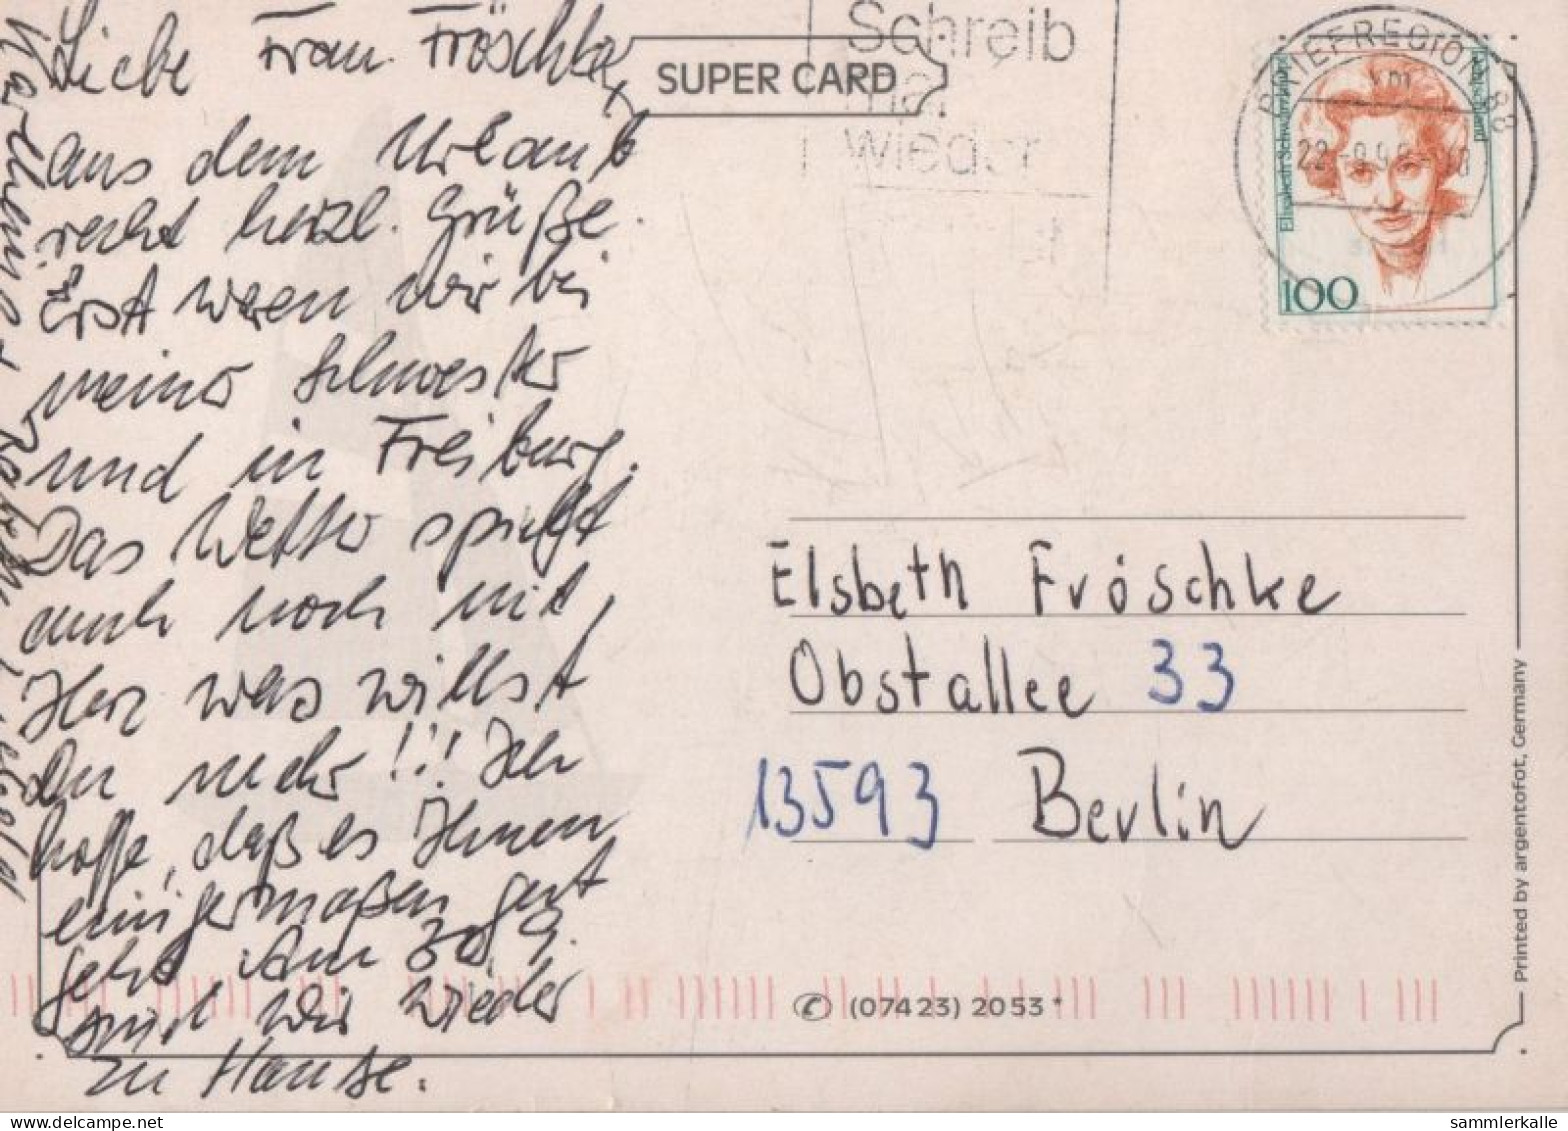 Liebe Frau Fröschke,
aus dem Urlaub
recht herzl. Grüße.
Erst waren wir bei
meiner Schwester
und in Freiburg.
Das Wetter spielt
auch noch mit,
Herz was willst
Du mehr!!! Ich
hoffe, daß es Ihnen
einigermaßen gut
geht. Am 30.9.
sind wir wieder
zu Hause.
SUPER CARD
Schreib
mal
wieder
BRIEFREGION 88
Elisabeth Schwarzhaupt
Deutsche Bundespost
100
Elsbeth Fröschke
Obstallee 33
13593 Berlin
(07423) 2053
Printed by argentofot, Germany
sammlerkalle